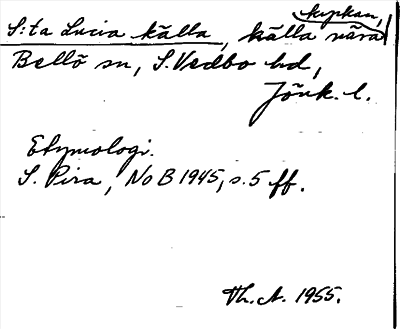 kyrkan,
S:ta Lucia källa, källa nära
Bellö sn, S. Vedbo hd,
Jönk. l.
Etymologi.
S. Pira, NoB 1945, s. 5 ff.
Th. A. 1955.